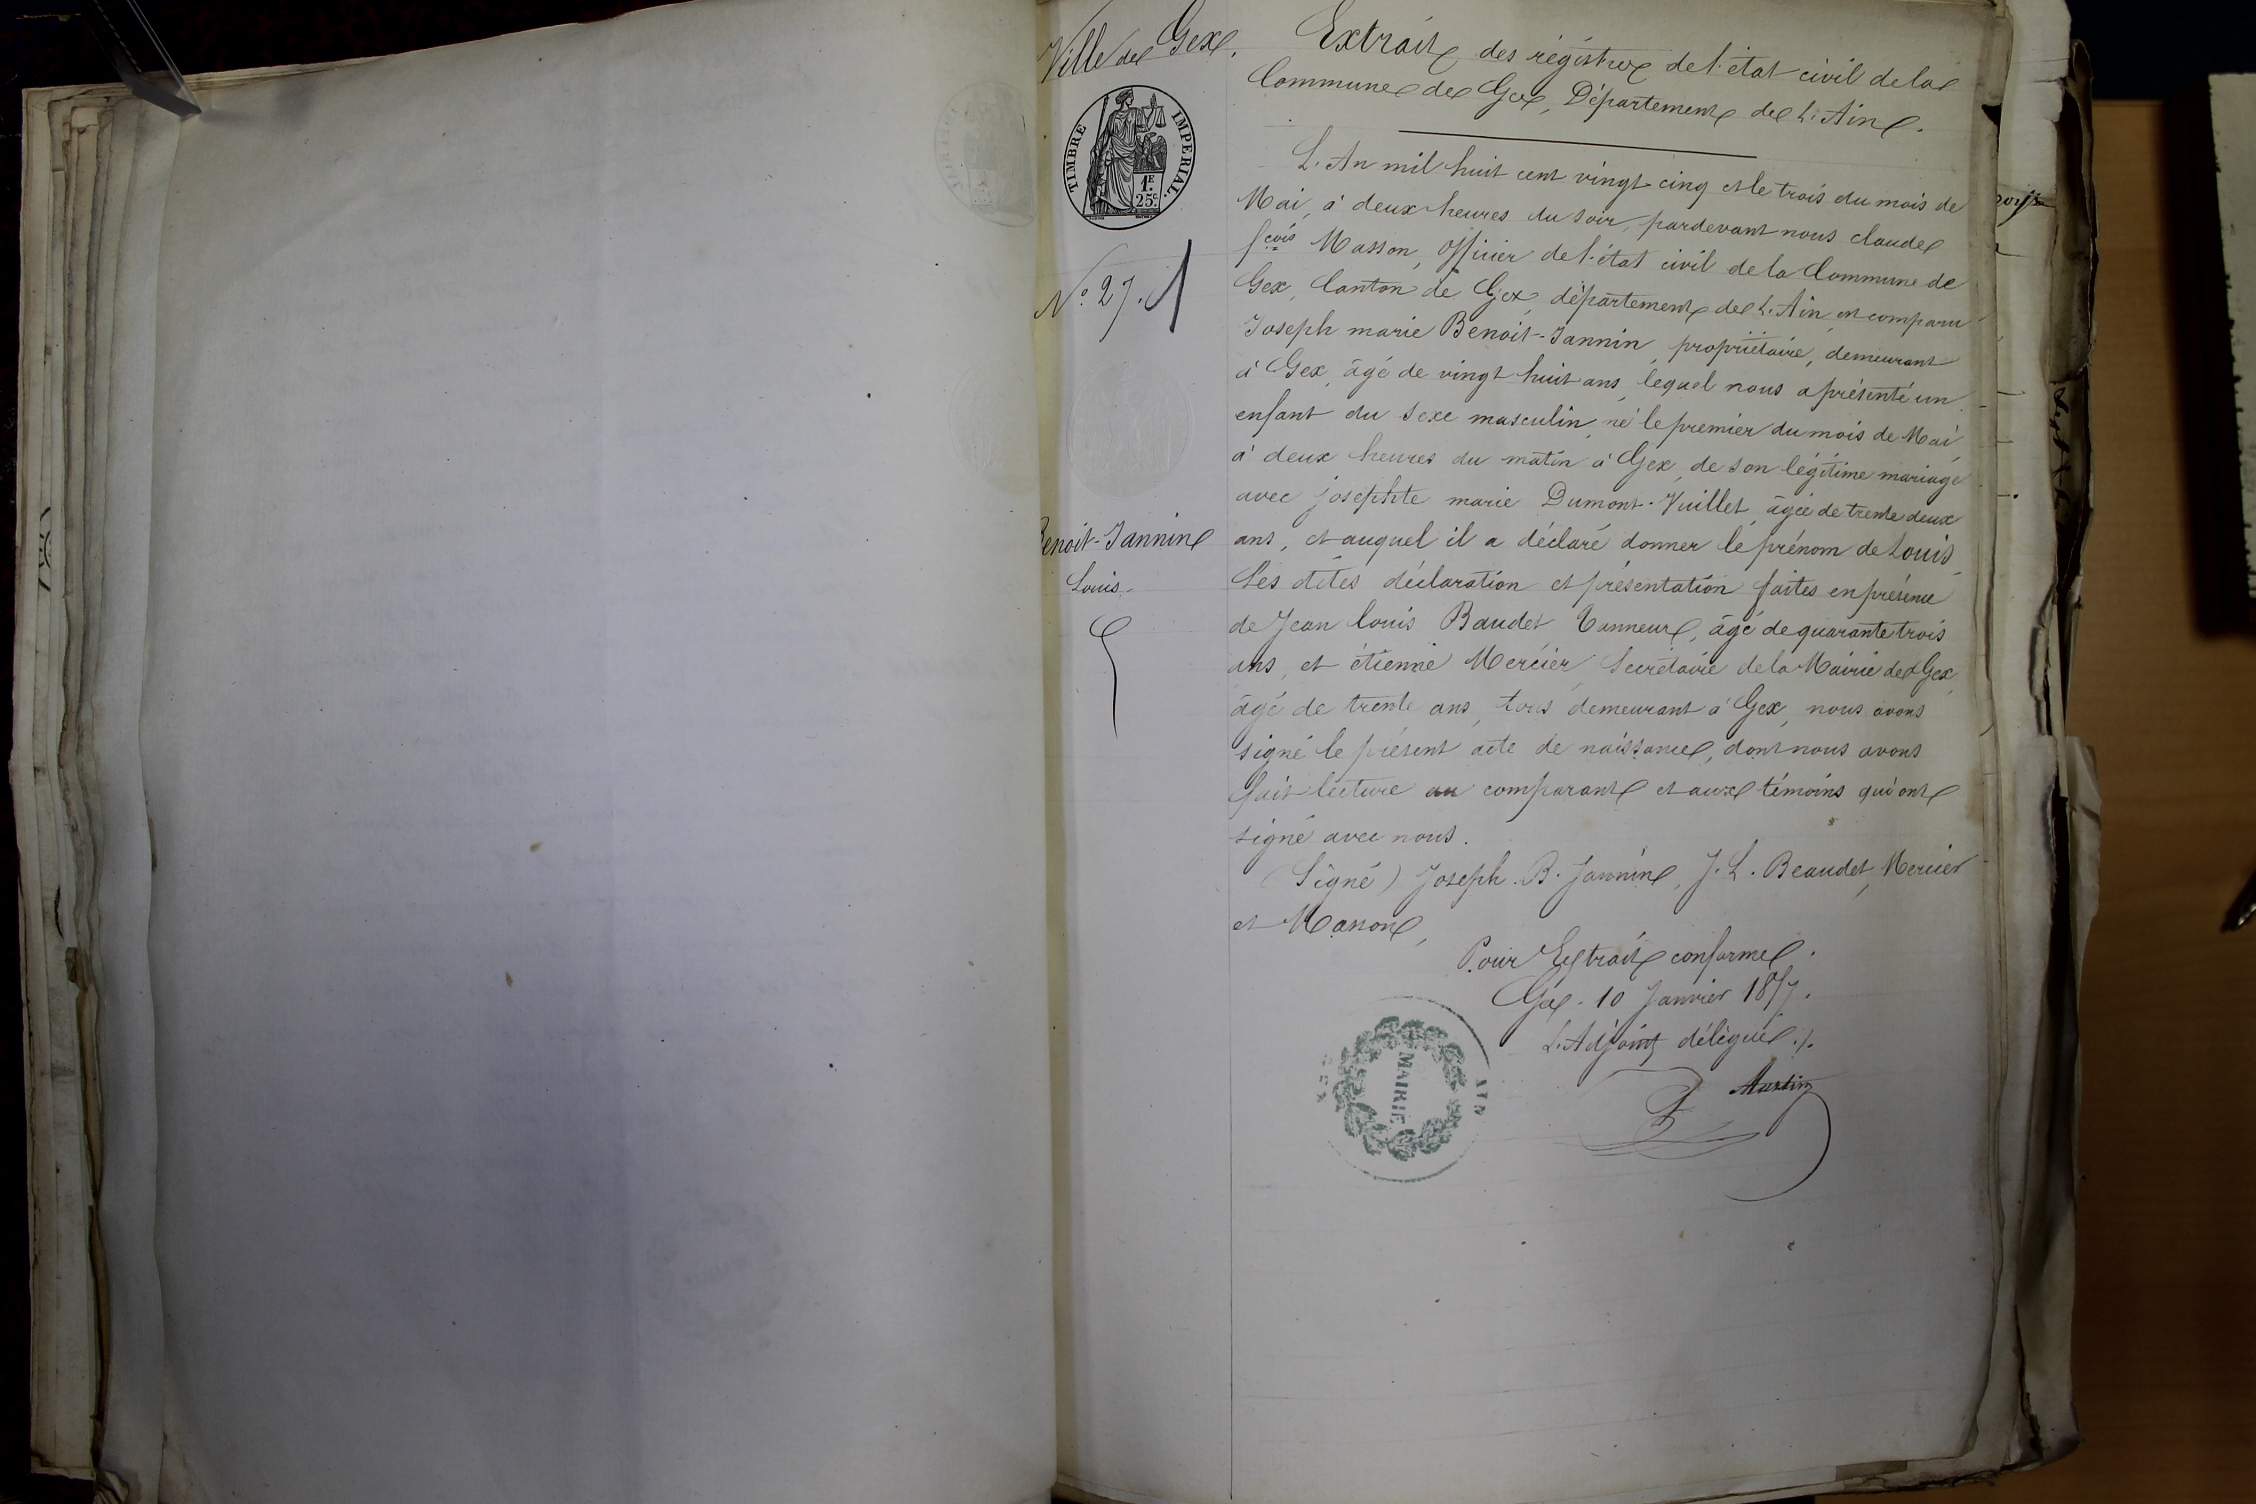 Ville de Gex.
TIMBRE IMPERIAL.
1E 25c
N° 27.
Benoit-Jannin
Louis.
Extrait des régistres de l'état civil de la
Commune de Gex, Département de L'Ain.
L'An mil huit cent vingt cinq et le trois du mois de
Mai, à deux heures du soir, pardevant nous claude
fçois Masson, officier de l'état civil de la Commune de
Gex, Canton de Gex, département de L'Ain, est comparu
Joseph marie Benoit-Jannin, propriétaire, demeurant
à Gex, âgé de vingt huit ans, lequel nous a présenté un
enfant du sexe masculin, né le premier du mois de Mai,
à deux heures du matin à Gex, de son légitime mariage
avec josephte marie Dumont-Vuillet, âgée de trente deux
ans, et auquel il a déclaré donner le prénom de Louis,
Les dites déclaration et présentation faites en présence
de Jean Louis Baudet Tanneur, âgé de quarante trois
ans, et étienne Mercier, Secrétaire de la Mairie de Gex,
âgé de trente ans, tous demeurant à Gex, nous avons
signé le présent acte de naissance, dont nous avons
fait lecture au comparant et aux témoins qui ont
signé avec nous.
(Signé) Joseph. B. Jannin, J. L. Beaudet, Mercier
et Masson,
Pour Extrait conforme.
Gex. 10 Janvier 1857.
L'Adjoint délégué./.
Martin
MAIRIE
GEX
AIN